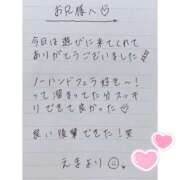 お兄様へ♡
今日は遊びに来てくれて
ありがとうございました
ノーハンドフェラ好き〜!
って溜まってた分スッキ
リできて良かった♡
良い復讐できた!笑
えまより